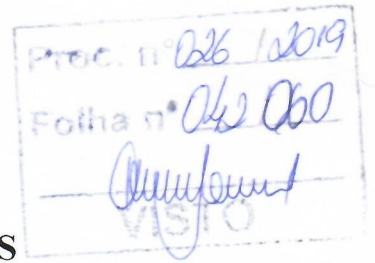 Proc. nº 026 / 2019
Folha nº 042 060
VISTO
S